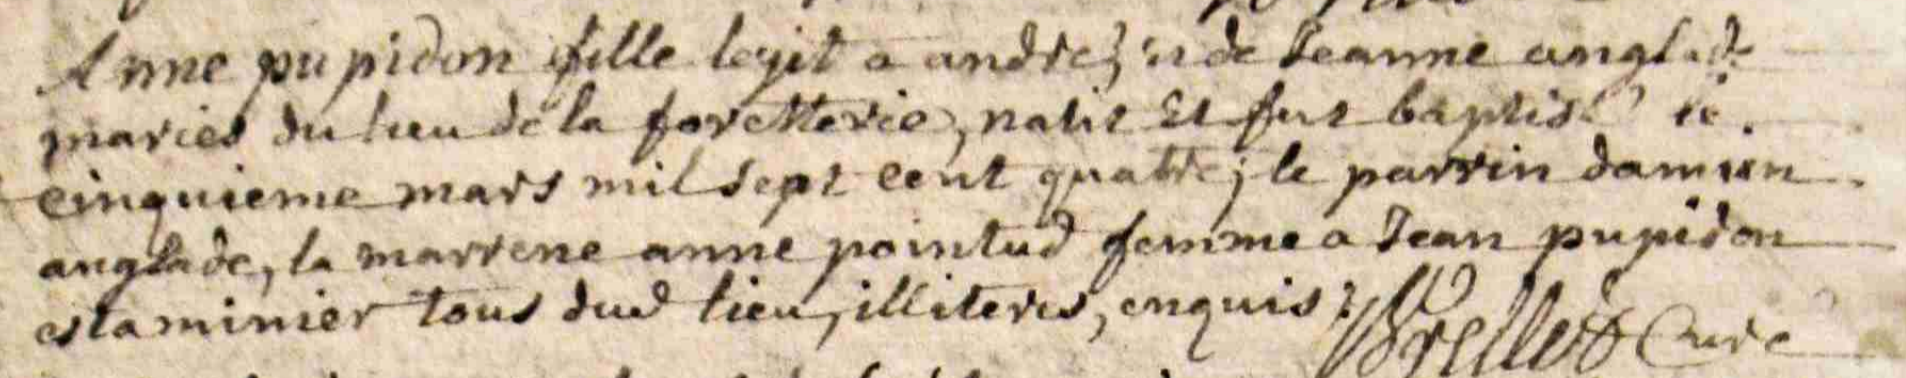 Anne pupidon fille legit a andre, et de Jeanne anglade
maries du lieu de la foretterie, naqit Et fut baptisé le
cinquieme mars mil sept cent quatre; le parrin damien
anglade, la marrene anne pointud femme a Jean pupidon
estaminier tous dud lieu, illiteres, enquis;
Curé